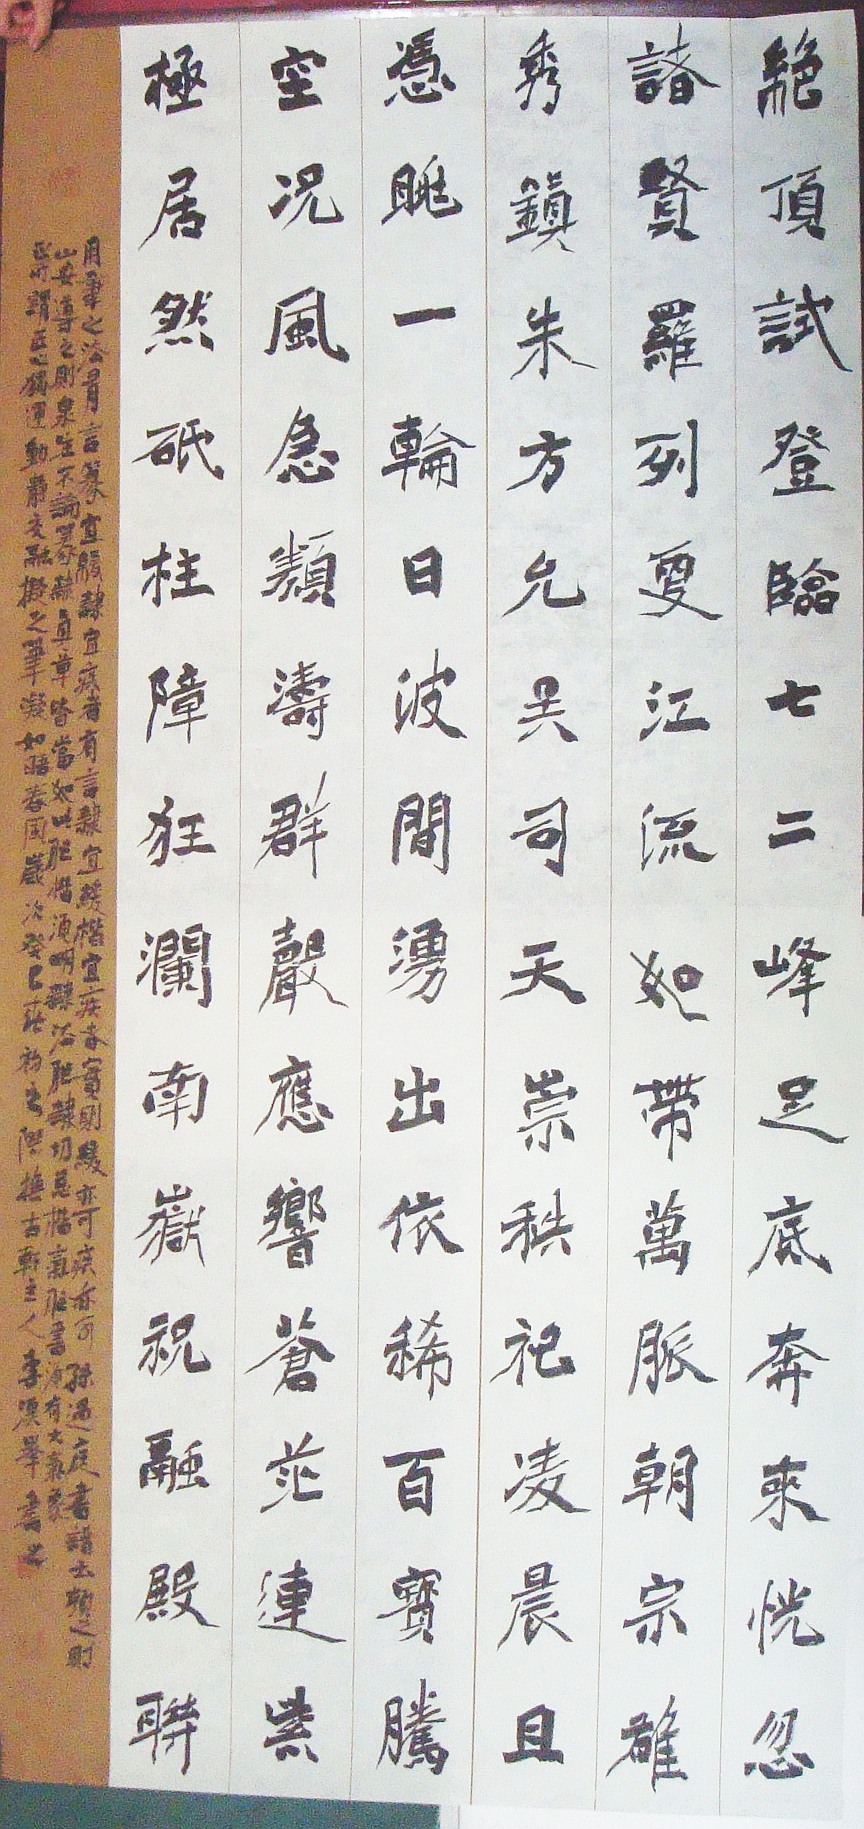 絕頂試登臨七二峰足底奔來恍忽
諸賢羅列更江流如帶萬脈朝宗雄
秀鎮朱方允矣司天崇秩祀凌晨且
憑眺一輪日波間湧出依稀百寶騰
空況風急類濤群聲應響蒼茫連紫
極居然砥柱障狂瀾南嶽祝融殿聯
用筆之法昔言篆宜緩隸宜疾者有言隸宜緩楷宜疾者實則緩亦可疾亦可孫過庭書譜云頓之則
山安導之則泉注不論篆隸真草皆當如此
歲次癸巳 主人李漢舉書之